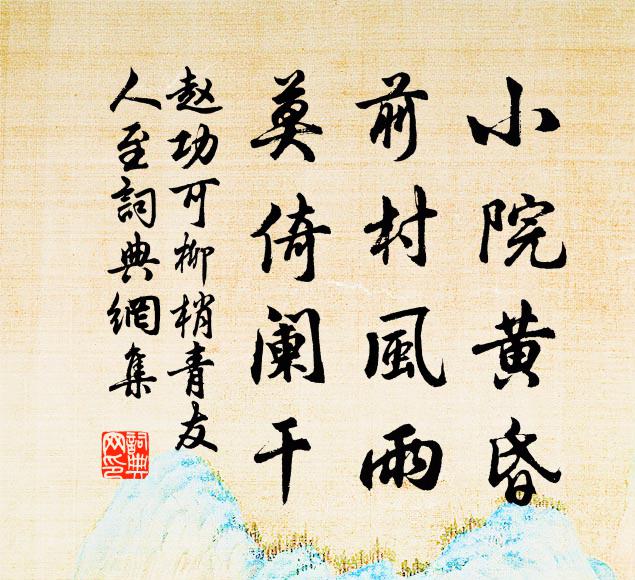 小院黄昏
前村風雨
莫倚阑干
赵功可柳梢青友
人至詞典網集
詞典網印